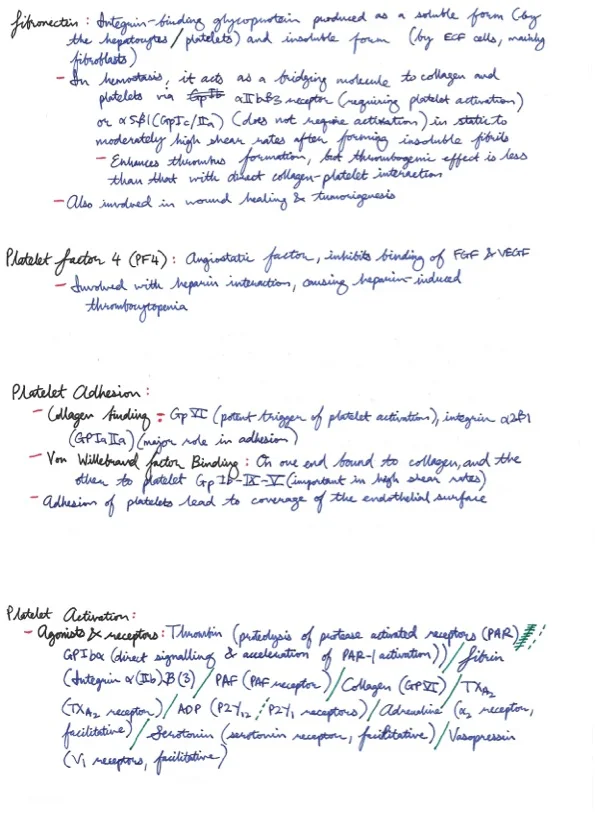 fibronectin : Integrin-binding glycoprotein produced as a soluble form (by
the hepatocytes / platelets) and insoluble form (by ECF cells, mainly
fibroblasts)
- In hemostasis, it acts as a bridging molecule to collagen and
platelets via GpIb αIIbβ3 receptor (requiring platelet activation)
or α5β1 (GpIc/IIa) (does not require activation) in static to
moderately high shear rates after forming insoluble fibrils
- Enhances thrombus formation, but thrombogenic effect is less
than that with direct collagen-platelet interaction
- Also involved in wound healing & tumorigenesis
Platelet factor 4 (PF4) : Angiostatic factor, inhibits binding of FGF & VEGF
- Involved with heparin interaction, causing heparin-induced
thrombocytopenia
Platelet Adhesion :
- Collagen binding : Gp VI (potent trigger of platelet activation), integrin α2β1
(GPIaIIa) (major role in adhesion)
- Von Willebrand factor Binding : On one end bound to collagen, and the
other to platelet Gp Ib-IX-V (important in high shear rates)
- Adhesion of platelets lead to coverage of the endothelial surface
Platelet Activation :
- Agonists & receptors : Thrombin (proteolysis of protease activated receptors (PAR) ;
GPIbα (direct signalling & acceleration of PAR-1 activation)) / fibrin
(Integrin α(IIb)β(3) / PAF (PAF receptor) / Collagen (GPVI) / TXA2
(TXA2 receptor) / ADP (P2Y12 ; P2Y1 receptors) / Adrenaline (α2 receptor,
facilitative) / Serotonin (serotonin receptor, facilitative) / Vasopressin
(V1 receptors, facilitative)